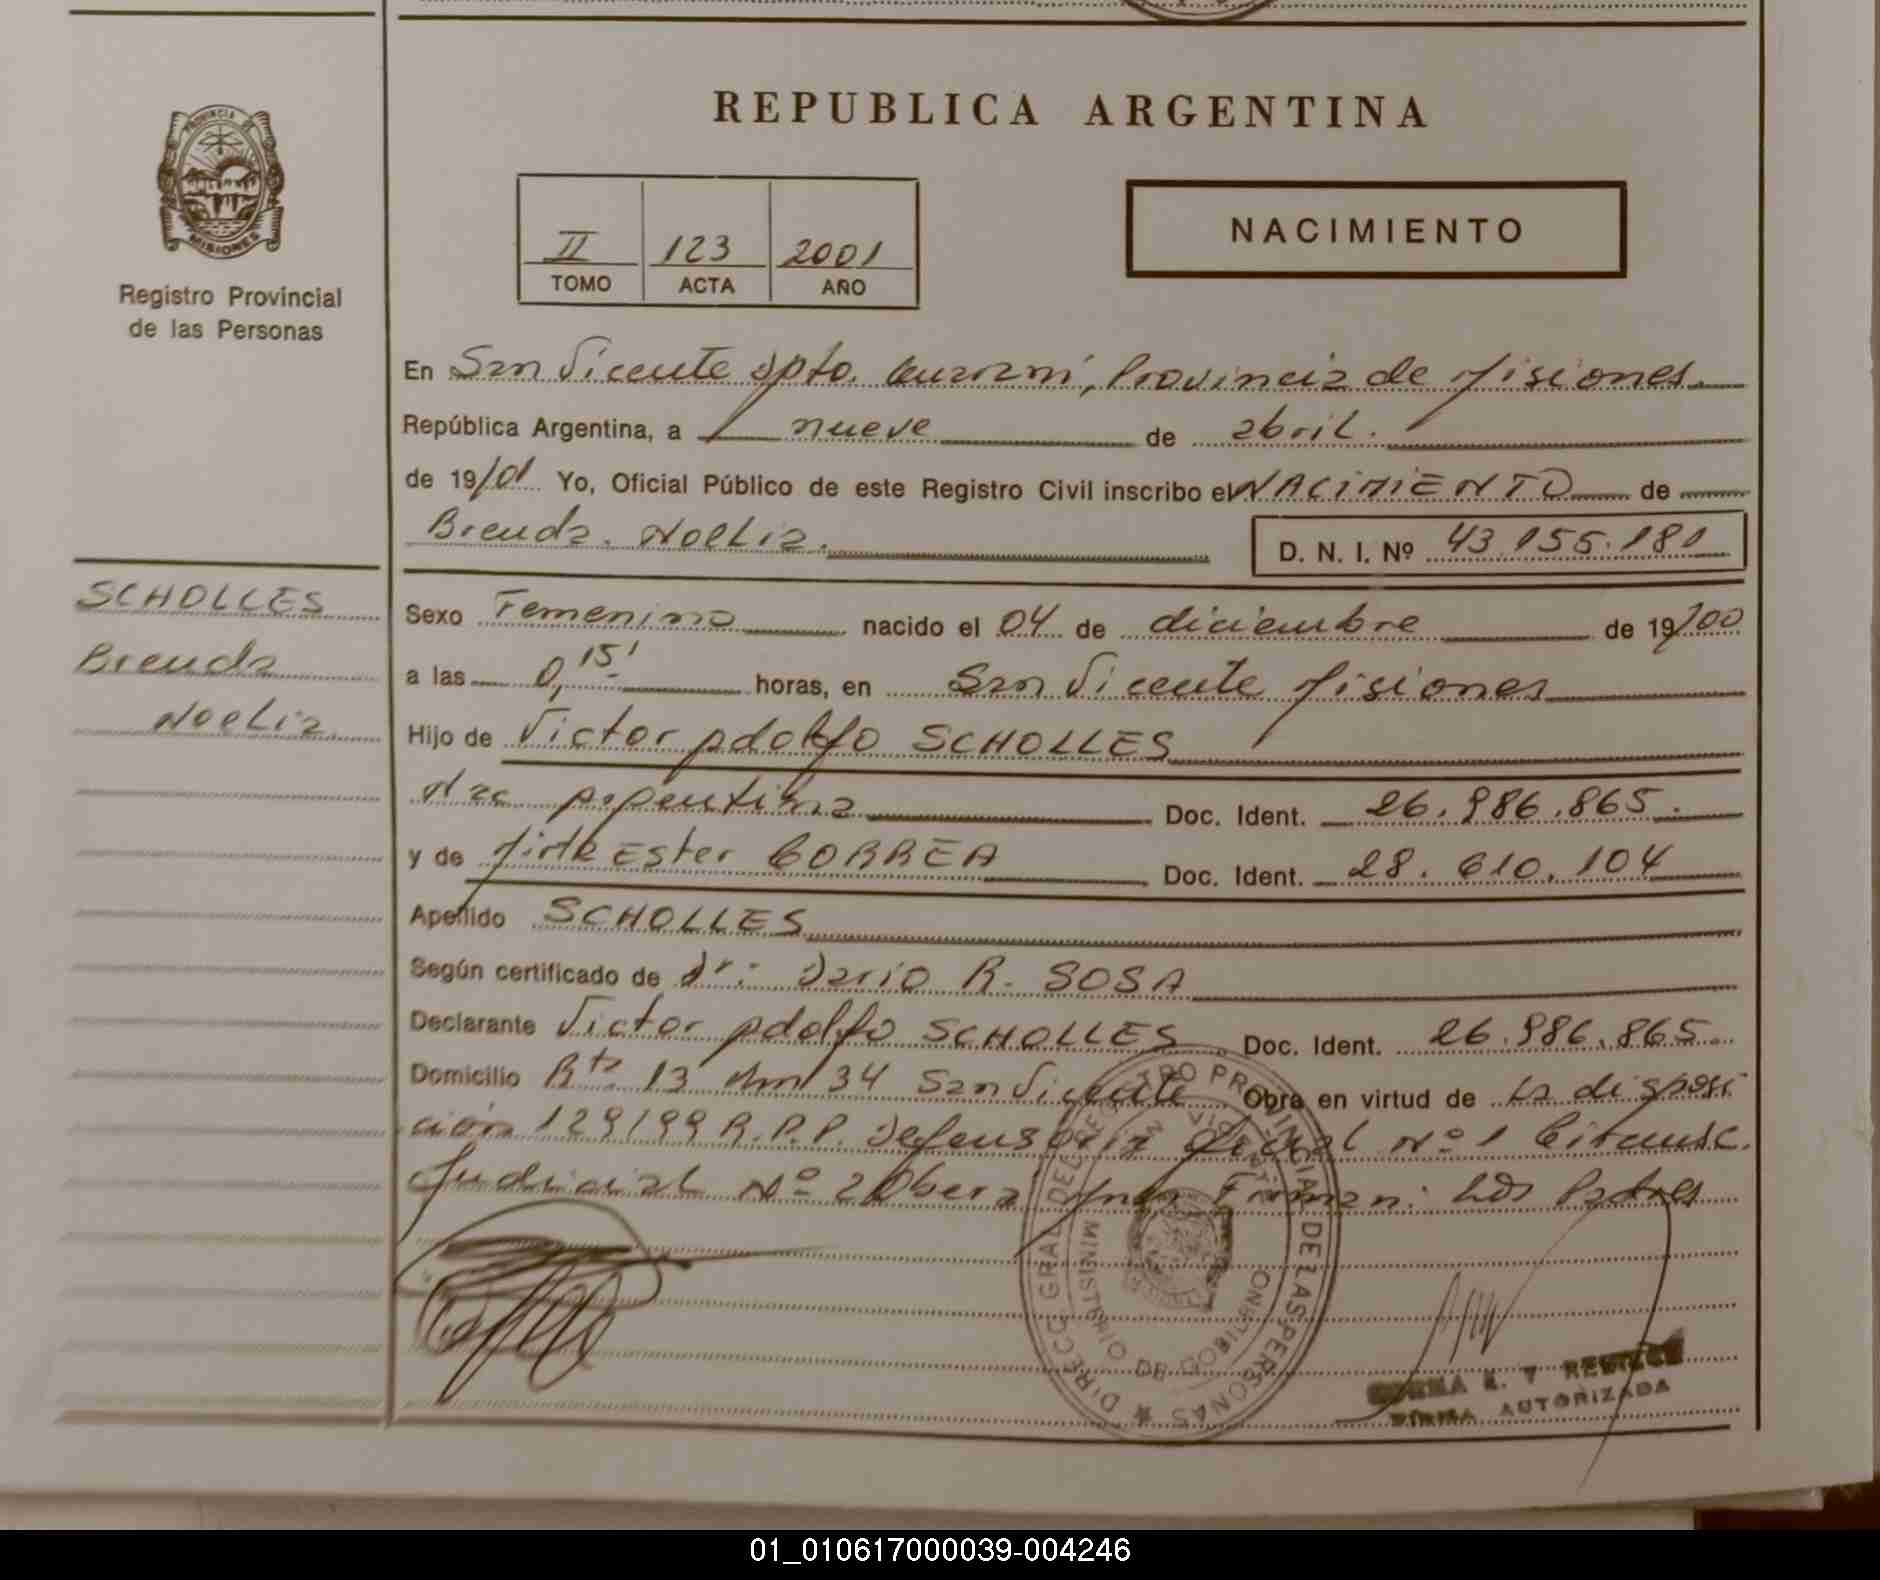 REPUBLICA ARGENTINA
PROVINCIA DE MISIONES
Registro Provincial
de las Personas
II 123 2001
TOMO ACTA AÑO
NACIMIENTO
En San Vicente Dpto. Guarani, Provincia de Misiones.
República Argentina, a nueve de abril.
de 19/01 Yo, Oficial Público de este Registro Civil inscribo el NACIMIENTO de
Brenda. Noelia. D. N. I. Nº 43.155.181
SCHOLLES
Brenda
Noelia.
Sexo Femenino nacido el 04 de diciembre de 19/00
a las 0,15' horas, en San Vicente Misiones
Hijo de Victor Adolfo SCHOLLES
Nac Argentina Doc. Ident. 26.986.865.
y de Ester CORREA Doc. Ident. 28.610.104
Apellido SCHOLLES
Según certificado de Dr: Dario R. SOSA
Declarante Victor Adolfo SCHOLLES Doc. Ident. 26.986.865.
Domicilio Rta 13 Km 34 San Vicente Obra en virtud de la disposi
ción 129/99 R.P.P. Defensoria Oficial Nº 1 Circunsc.
Judicial Nº 2 Obera Mnes Firman: Los Padres
DIRECC. GRAL DEL REGISTRO PROVINCIAL DE LAS PERSONAS
SAN VICENTE
MINISTERIO DE GOBIERNO
FIRMA AUTORIZADA
01_010617000039-004246